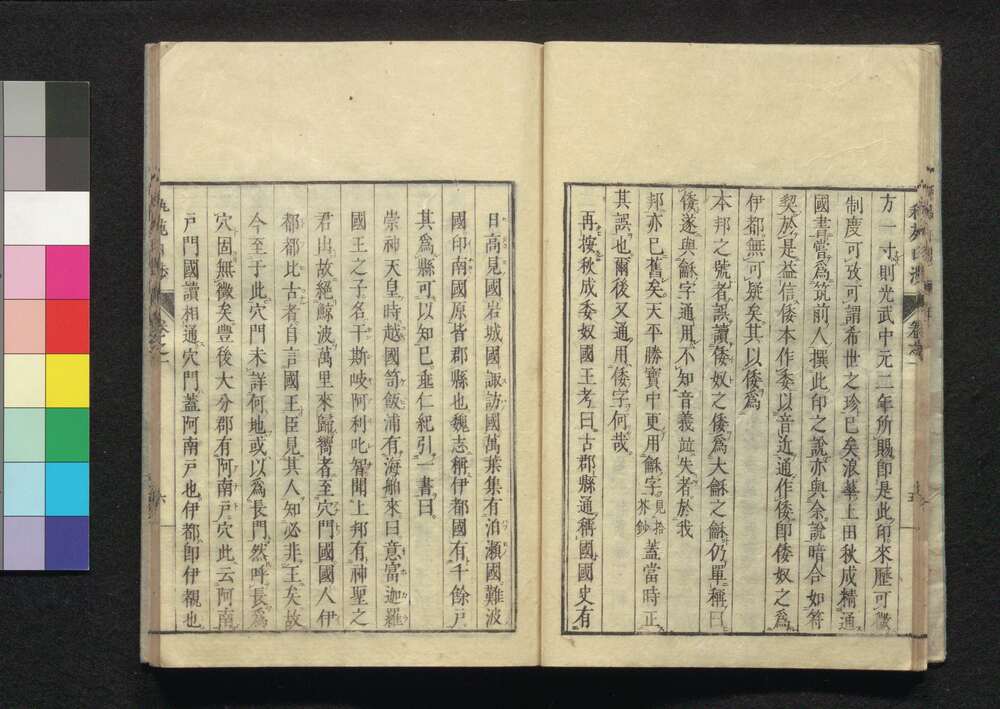 方一寸則光武中元二年所賜即是此印來歷可徵
制度可攷可謂希世之珍已矣浪華上田秋成精通
國書嘗爲筑前人撰此印之說亦與余說暗合如符
契於是益信倭本作委以音近通作倭即倭奴之爲
伊都無可疑矣其以倭爲
本邦之號者誤讀倭奴之倭爲大龢之龢仍單稱曰
倭遂與龢字通用不知音義竝失者於我
邦亦已舊矣天平勝寶中更用龢字見拾芥鈔蓋當時正
其誤也爾後又通用倭字何哉
再按秋成委奴國王考曰古郡縣通稱國國史有
日高見國岩城國諏訪國萬葉集有泊瀬國難波
國印南國原皆郡縣也魏志稱伊都國有千餘戸
其爲縣可以知已垂仁紀引一書曰
崇神天皇時越國笥飯浦有海舶來曰意富迦羅
國王之子名干斯岐阿利叱智聞上邦有神聖之
君出故絕鯨波萬里來歸嚮者至穴門國國人伊
都都比古者自言國王臣見其人知必非王矣故
今至于此穴門未詳何地或以爲長門然呼長爲
穴固無徵矣豊後大分郡有阿南戸穴此云阿南
戸門國讀相通穴門蓋阿南戸也伊都即伊覩也
卷之一
六